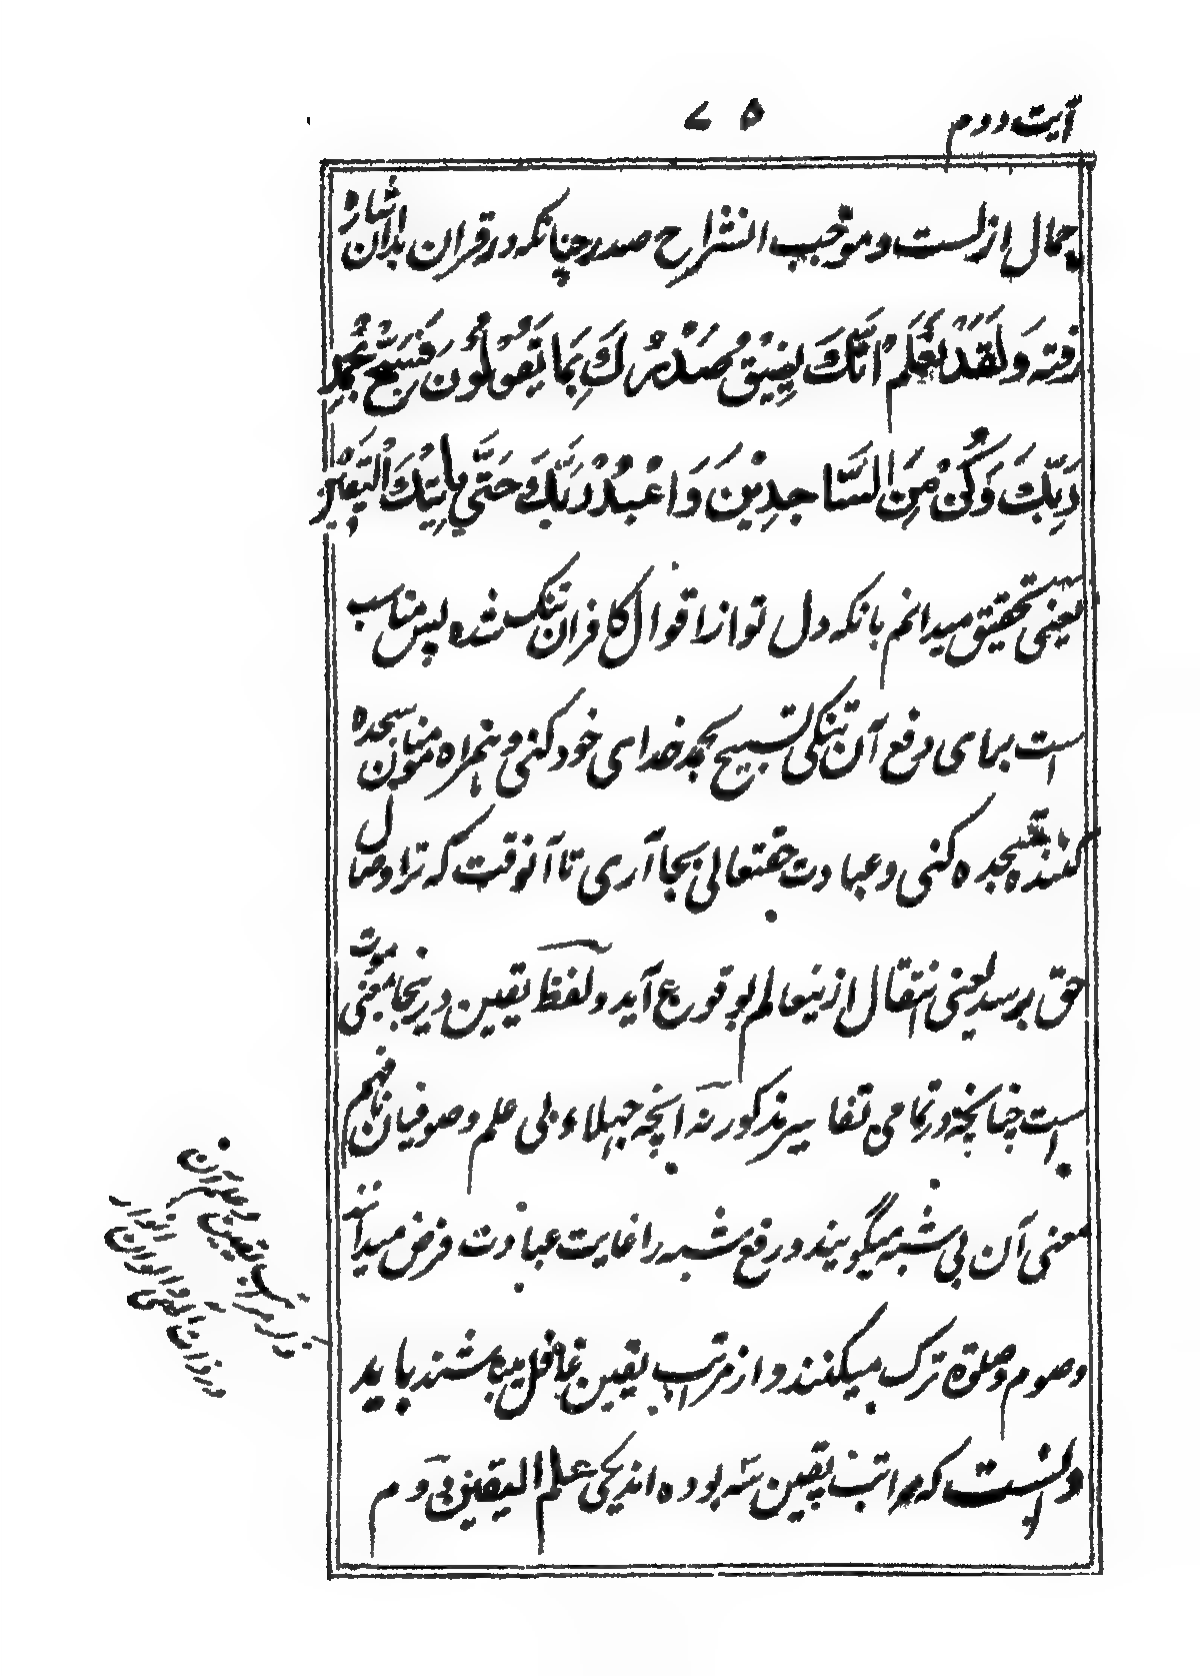 آیت دوم ۷۵
جمال ازلست و موجب انشراح صدر چنانکه در قران بدان اشاره
رفته وَلَقَدْ نَعْلَمُ اَنَّكَ یَضِیْقُ صَدْرُكَ بِمَا یَقُوْلُوْنَ فَسَبِّحْ بِحَمْدِ
رَبِّكَ وَكُنْ مِّنَ السَّاجِدِیْنَ وَاعْبُدْ رَبَّكَ حَتّٰی یَاْتِیَكَ الْیَقِیْنُ
یعنی تحقیق میدانم بانکه دل تو از اقوال کافران تنک شده پس مناسب
است برای دفع آن تنکی تسبیح بحمد خدای خود کنی و همراه مومنان سجده
کنند سجده کنی و عبادت حقتعالی بجا آری تا آنوقت که ترا وصال
حق برسد یعنی انتقال ازینعالم بوقوع آید و لفظ یقین درینجا بمعنی موت
است چنانچه در تمامی تفاسیر مذکور شد انچه جهلاء بی علم و صوفیان نافهم
معنی آن بی شبه میگویند و رفع شبه را غایت عبادت فرض میدانند
و صوم و صلوة ترک میکنند و از مراتب یقین غافل میباشند باید
دانست که مراتب یقین سه بوده اند یکی علم الیقین دوم